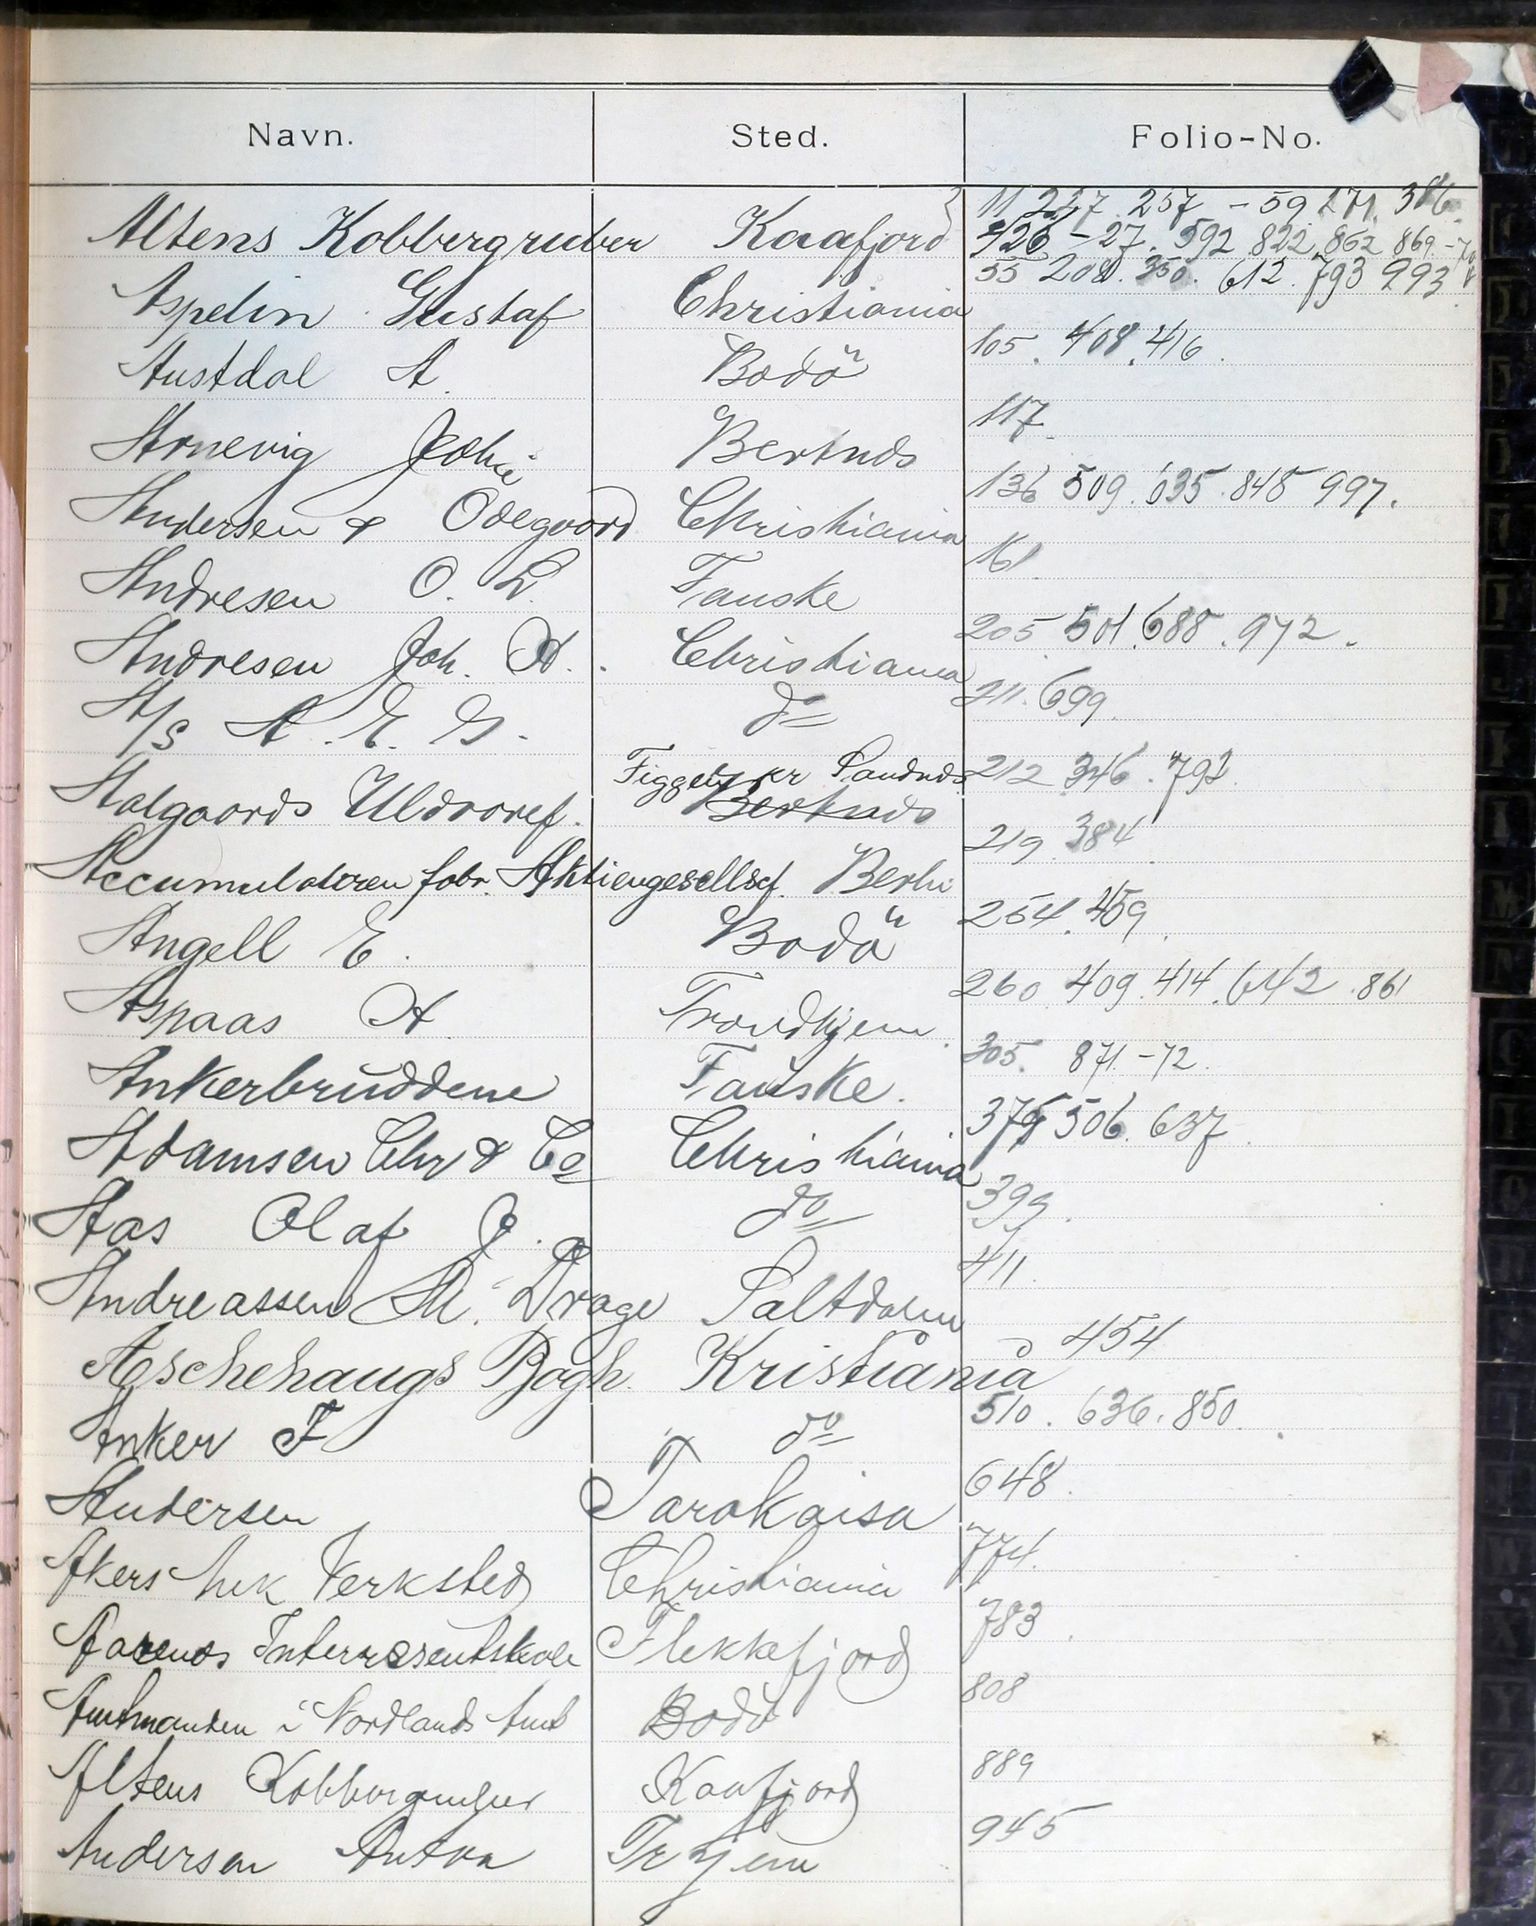 Navn. Sted. Folio-No.
11 227. 257 - 59 271. 386
Altens Kobbergruber Kaafjord 426 - 27. 592 822. 862 869 - 70
55 208. 350. 612. 793 993
Aspelin Gustaf Christiania
105. 408. 416.
Austdal A. Bodö
117.
Arnevig Johs Bertnds
136 509. 635. 845 997.
Andersen & Odegaard Christiania
161.
Andresen O. L. Fauske
205. 501. 688. 972.
Andresen Joh. H. Christiania
211. 699.
A/S A. E. G. do
Figgen pr Sandnds 212 346. 792
Aalgaards Uldvaref. Bertnds
219. 384.
Accumulatoren fabr. Aktiengesellsch. Berlin
254. 459.
Angell E. Bodö
260 409. 414. 642. 861
Aspaas A. Trondhjem.
305. 871 - 72.
Ankerbruddene Fauske.
375 506. 637.
Adamsen Chr & Co Christiania
399.
Aas Olaf J. do
411.
Andreassen M. Drage Saltdalen
454
Aschehaugs Bogh. Kristiania
510. 636. 850.
Anker F do
648.
Andersen Tarakaisa
774.
Akers Mek Verksted Christiania
783.
Interessentskab Flekkefjord
808
Amtmanden i Nordlands Amt Bodö
889
Altens Kobbergruber Kaafjord
945
Andersen Anton Trhjem